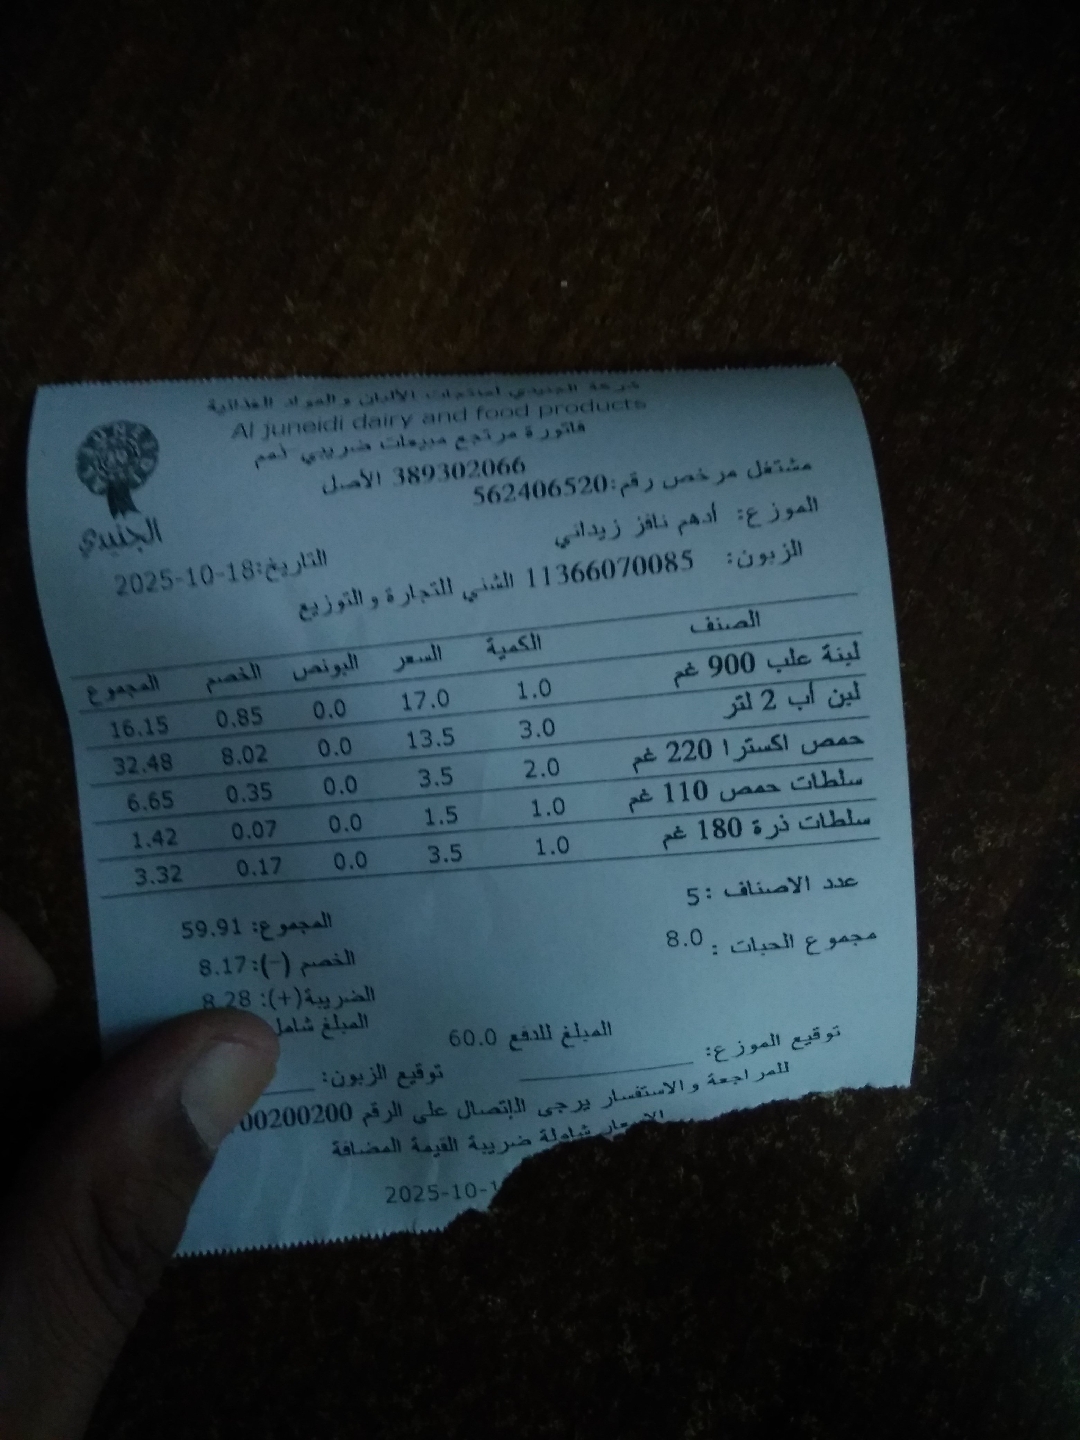 شركة الجنيدي لمنتجات الألبان والمواد الغذائية
Al juneidi dairy and food products
فاتورة مرتجع مبيعات ضريبي ذمم
389302066 الأصل
مشتغل مرخص رقم:562406520
الجنيدي
الموزع: أدهم نافز زيداني
التاريخ:2025-10-18
الزبون: 11366070085 الشني للتجارة والتوزيع
الصنف الكمية السعر البونص الخصم المجموع
لبنة علب 900 غم 1.0 17.0 0.0 0.85 16.15
لبن أب 2 لتر 3.0 13.5 0.0 8.02 32.48
حمص اكسترا 220 غم 2.0 3.5 0.0 0.35 6.65
سلطات حمص 110 غم 1.0 1.5 0.0 0.07 1.42
سلطات ذرة 180 غم 1.0 3.5 0.0 0.17 3.32
عدد الاصناف :5
المجموع: 59.91
مجموع الحبات : 8.0
الخصم (-):8.17
الضريبة(+): 8.28
المبلغ شامل
المبلغ للدفع 60.0
توقيع الموزع:
توقيع الزبون:
للمراجعة والاستفسار يرجى الإتصال على الرقم 00200200
شاملة ضريبة القيمة المضافة
2025-10-1